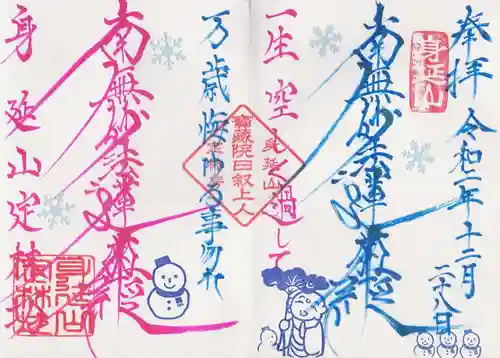 奉拝 令和二年十二月二十八日
身延山
南無妙法蓮華経
一生空しく過して
寶蔵院日叙上人
身延山
万歳悔ゆる事勿れ
南無妙法蓮華経
身延山定林坊